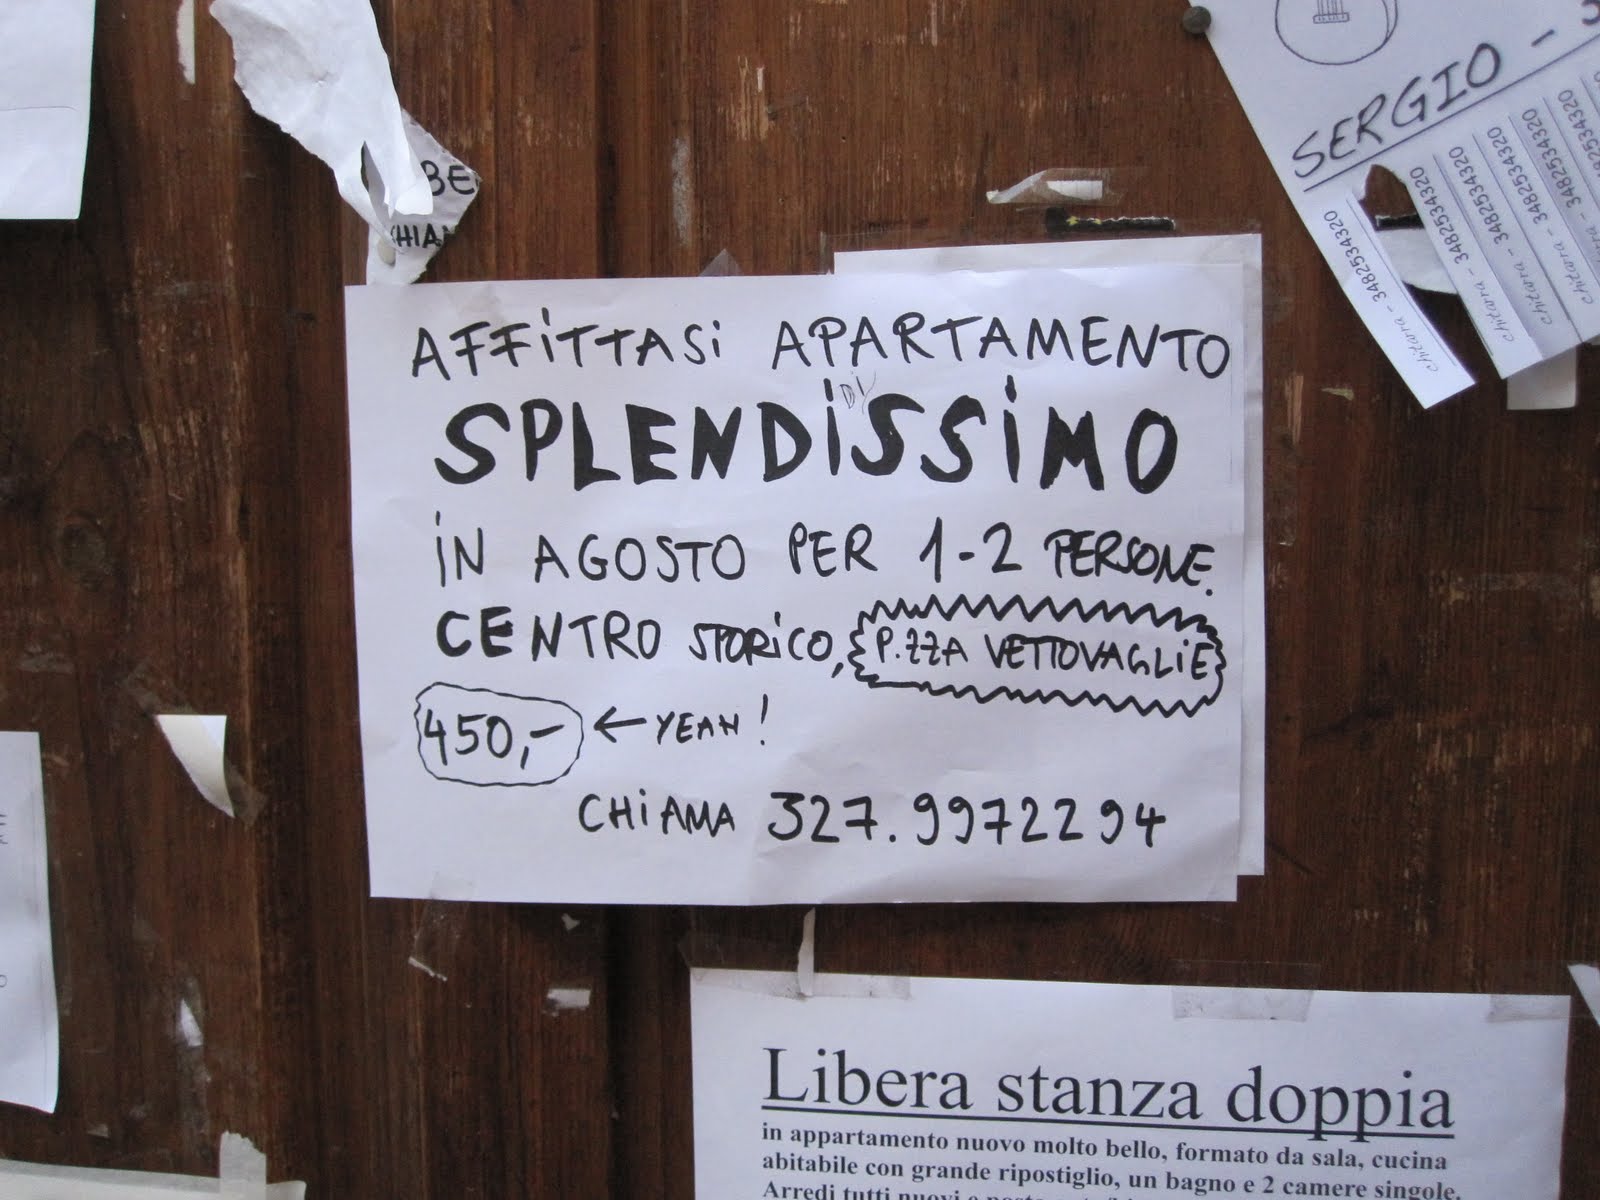 BE
CHIAM
SERGIO -
chitarra - 3482534320
chitarra - 3482534320
chitarra - 3482534320
chitarra - 3482534320
chitarra - 3482534320
AFFiTTASi APARTAMENTO
DI
SPLENDiSSiMO
iN AGOSTO PER 1-2 PERSONE.
CENTRO STORiCO, P.ZZA VETTOVAGLiE
450,- ← YEAH!
CHiAMA 327.9972294
Libera stanza doppia
in appartamento nuovo molto bello, formato da sala, cucina
abitabile con grande ripostiglio, un bagno e 2 camere singole.
Arredi tutti nuovi e